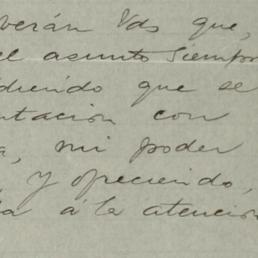 verán Vds que,
el asunto siempre
pidiendo que se
tación con
a, mi poder
, y ofreciendo,
a á la atención